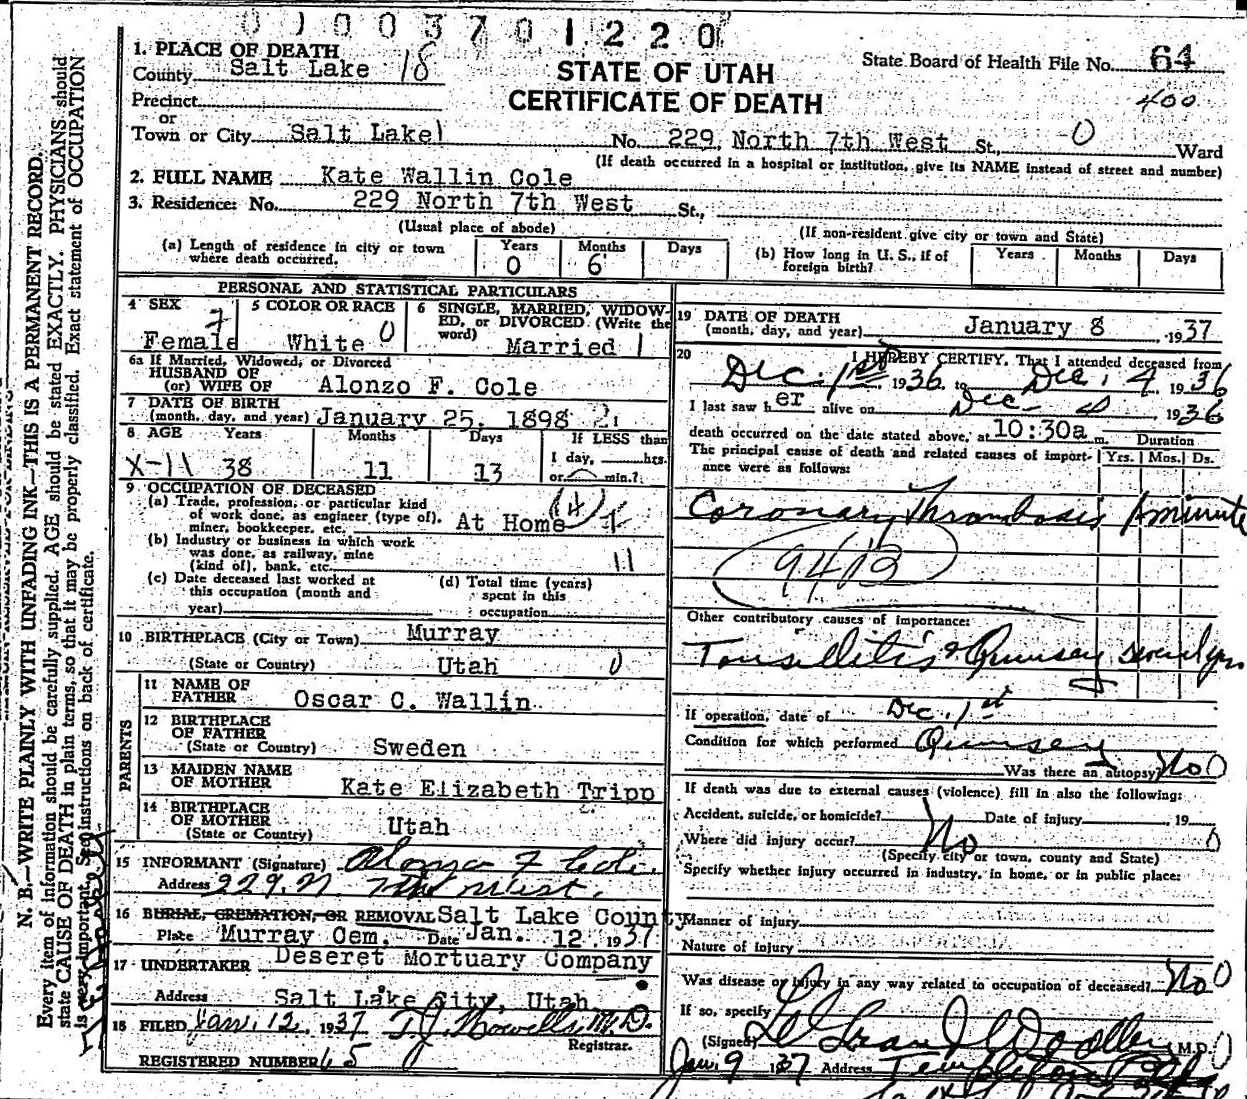 0 1 0 0 3 7 0 1 2 2 0
1. PLACE OF DEATH
County Salt Lake 18
STATE OF UTAH
CERTIFICATE OF DEATH
State Board of Health File No. 64
400
Precinct
or
Town or City Salt Lake No. 229 North 7th West St., 0 Ward
(If death occurred in a hospital or institution, give its NAME instead of street and number)
2. FULL NAME Kate Wallin Cole
3. Residence: No. 229 North 7th West St.,
(Usual place of abode) (If non-resident give city or town and State)
(a) Length of residence in city or town where death occurred. Years 0 Months 6 Days
(b) How long in U. S., if of foreign birth? Years Months Days
PERSONAL AND STATISTICAL PARTICULARS
4 SEX Female
5 COLOR OR RACE White 0
6 SINGLE, MARRIED, WIDOWED, or DIVORCED (Write the word) Married 1
6a If Married, Widowed, or Divorced
HUSBAND OF
(or) WIFE OF Alonzo F. Cole
7 DATE OF BIRTH
(month, day, and year) January 25, 1898
8 AGE Years Months Days If LESS than
X-11 38 11 13 1 day, hrs.
or min.?
9 OCCUPATION OF DECEASED
(a) Trade, profession, or particular kind
of work done, as engineer (type of),
miner, bookkeeper, etc. At Home
(b) Industry or business in which work
was done, as railway, mine
(kind of), bank, etc. 11
(c) Date deceased last worked at
this occupation (month and
year)
(d) Total time (years)
spent in this
occupation
10 BIRTHPLACE (City or Town) Murray
(State or Country) Utah 0
PARENTS
11 NAME OF
FATHER Oscar C. Wallin
12 BIRTHPLACE
OF FATHER
(State or Country) Sweden
13 MAIDEN NAME
OF MOTHER Kate Elizabeth Tripp
14 BIRTHPLACE
OF MOTHER
(State or Country) Utah
15 INFORMANT (Signature) Alonzo F Cole.
Address 229. N. 7th West.
16 BURIAL, CREMATION, OR REMOVAL Salt Lake County
Place Murray Cem. Date Jan. 12, 1937
17 UNDERTAKER Deseret Mortuary Company
Address Salt Lake City, Utah
18 FILED Jan. 12, 1937 T. J. Howells, M.D.
Registrar.
REGISTERED NUMBER 65
19 DATE OF DEATH
(month, day, and year) January 8, 1937
20 I HEREBY CERTIFY, That I attended deceased from
Dec. 1st 1936 to Dec. 4 1936
I last saw her alive on Dec - 4, 1936
death occurred on the date stated above, at 10:30a m.
The principal cause of death and related causes of importance were as follows:
Duration
Yrs. Mos. Ds.
Coronary Thrombosis 1 minute
94B
Other contributory causes of importance:
Tonsillitis & Quinsey several yrs
If operation, date of Dec. 1st
Condition for which performed Quinsey
Was there an autopsy? No 0
If death was due to external causes (violence) fill in also the following:
Accident, suicide, or homicide? Date of injury 19
Where did injury occur? No 0
(Specify city or town, county and State)
Specify whether injury occurred in industry, in home, or in public place:
Manner of injury
Nature of Injury
Was disease or injury in any way related to occupation of deceased? No 0
If so, specify
(Signed) LeGrand Woolley M.D. 0
Jan. 9 1937 Address Templeton Bldg
N. B.—WRITE PLAINLY WITH UNFADING INK—THIS IS A PERMANENT RECORD.
Every item of information should be carefully supplied. AGE should be stated EXACTLY. PHYSICIANS should
state CAUSE OF DEATH in plain terms, so that it may be properly classified. Exact statement of OCCUPATION
is very important. See instructions on back of certificate.